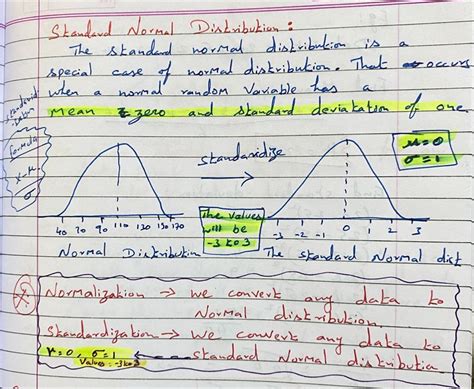 Standard Normal Distribution:
The standard normal distribution is a
special case of normal distribution. That occurs
when a normal random variable has a
mean zero and standard deviation of one
formula
x-μ
σ
standardize
μ=0
σ=1
The values
will be
-3 to 3
40 70 90 110 130 150 170
-3 -2 -1 0 1 2 3
Normal Distribution
The standard Normal dist
Normalization → we convert any data to
Normal distribution
Standardization → we convert any data to
standard Normal distribution
μ=0, σ=1
Values: -3 to 3